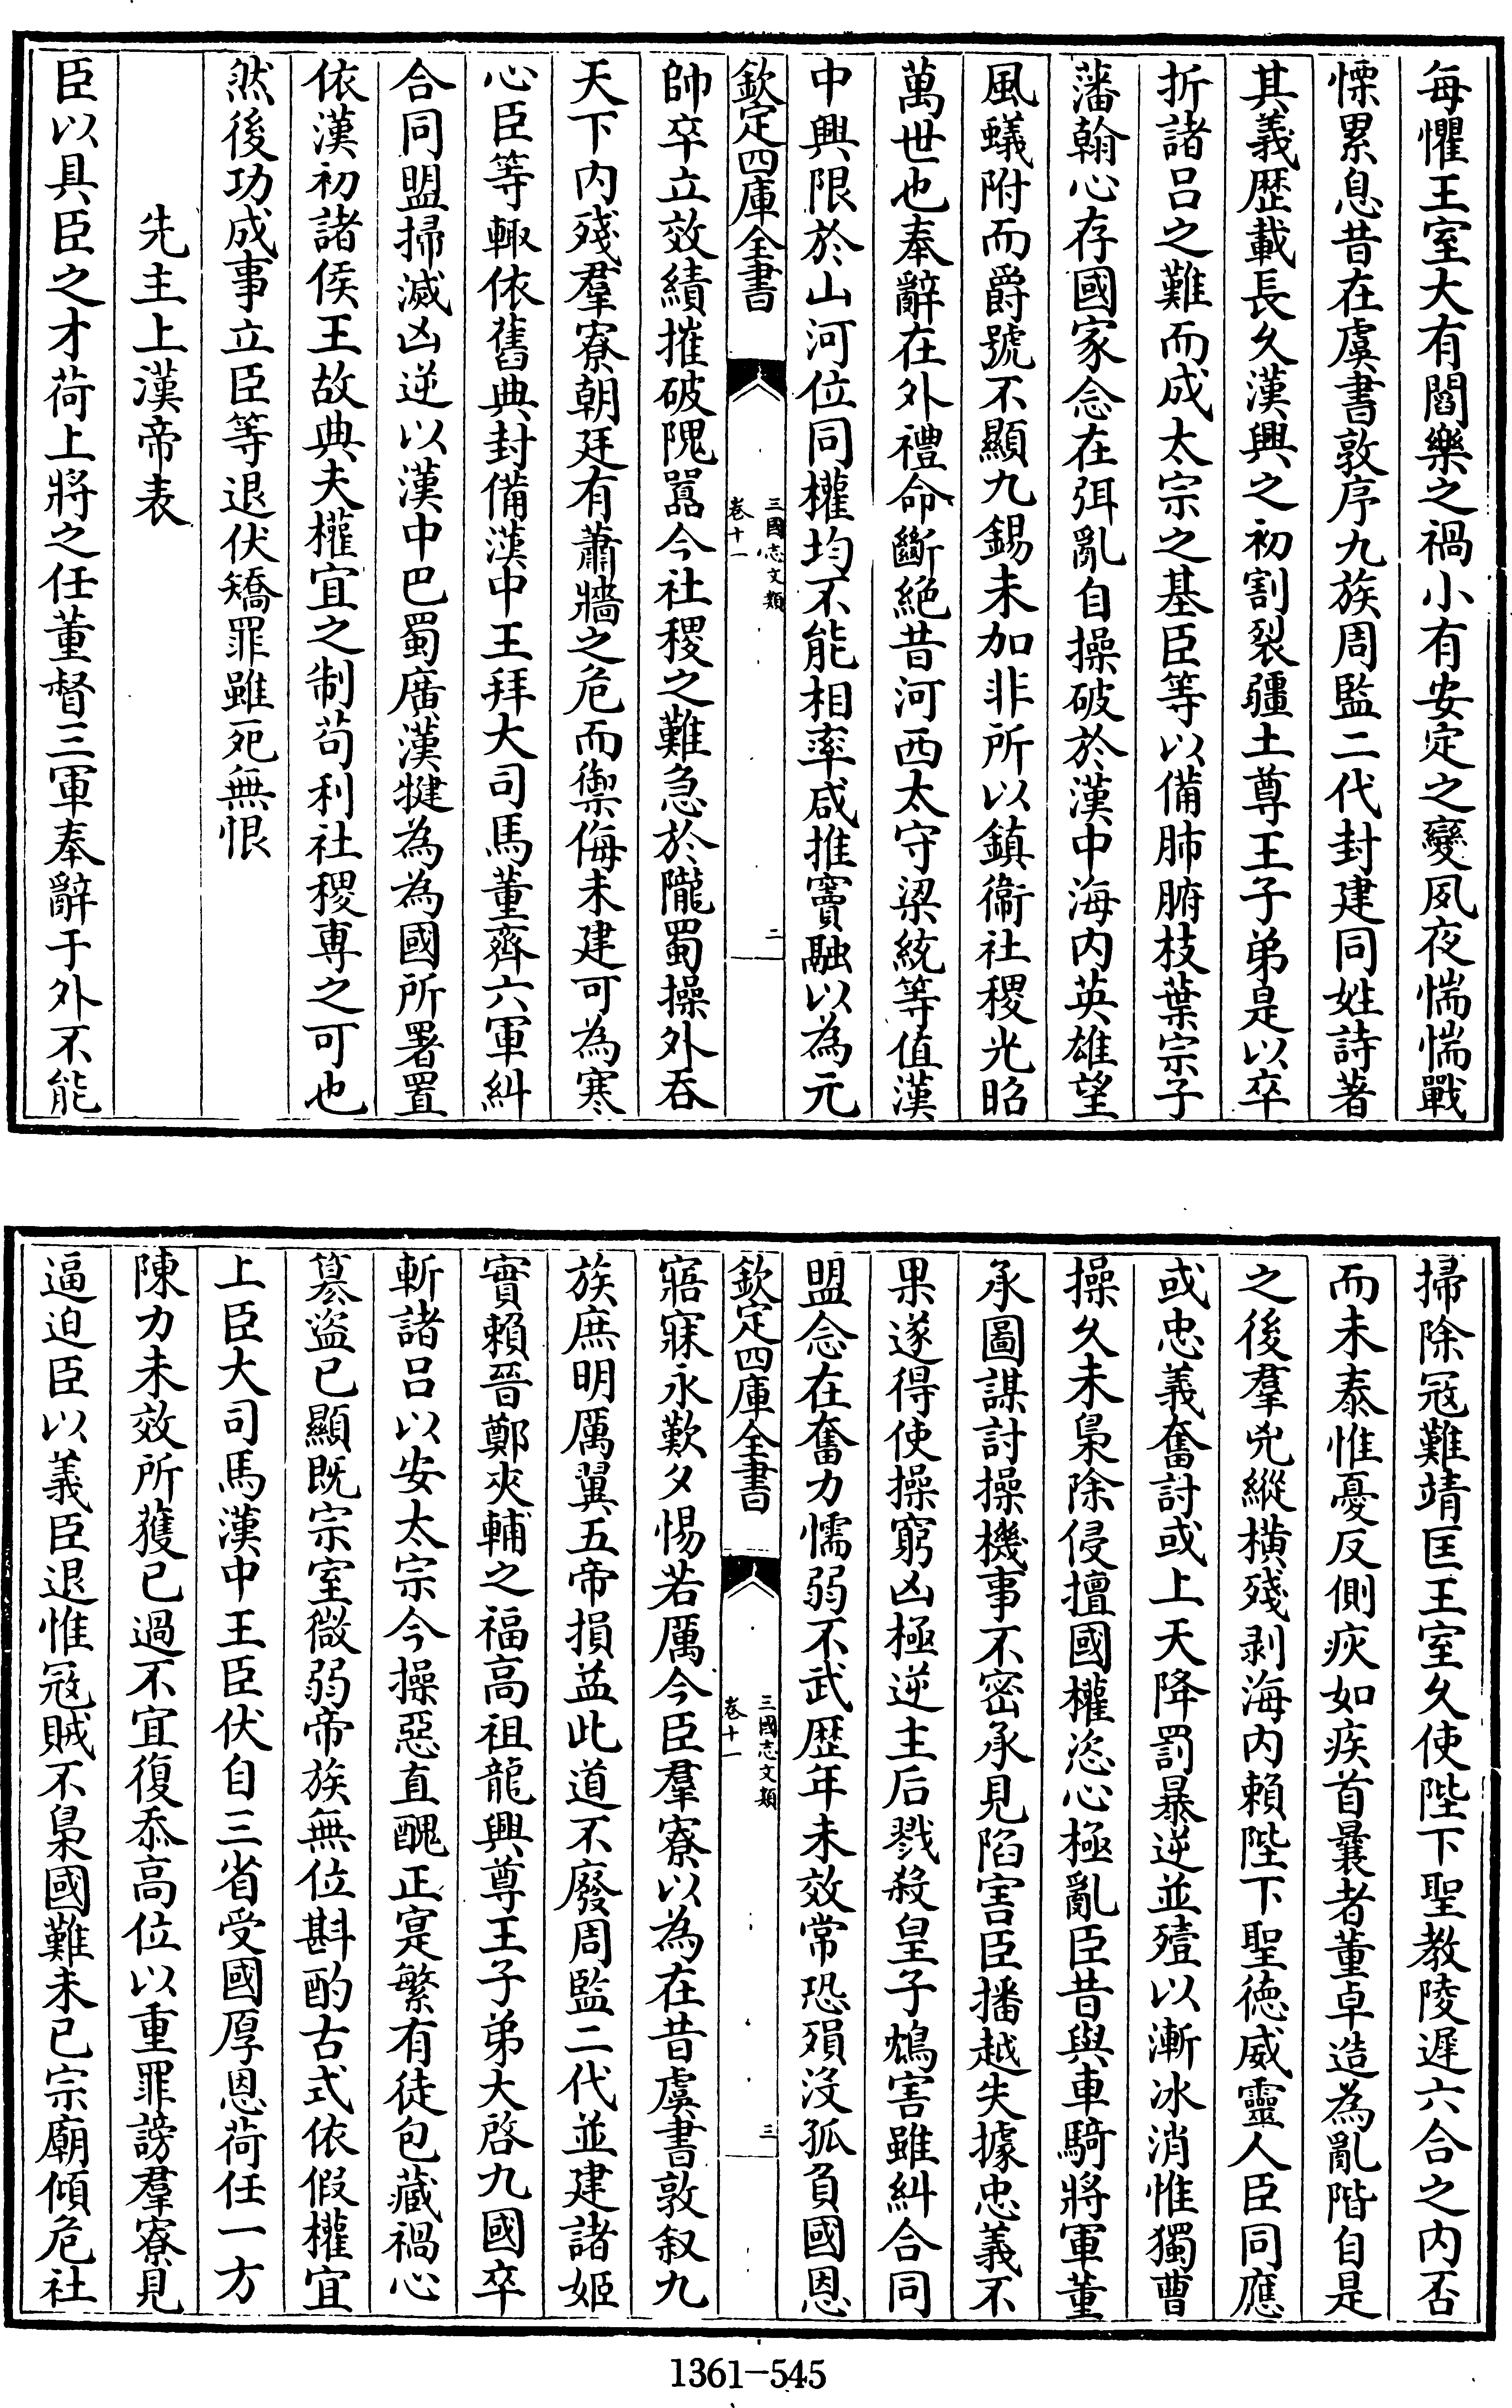 每懼王室大有閻樂之禍小有安定之變夙夜惴惴戰
慄累息昔在虞書敦序九族周監二代封建同姓詩著
其義歴載長久漢興之初割裂疆土尊王子弟是以卒
折諸吕之難而成太宗之基臣等以備肺腑枝葉宗子
藩翰心存國家念在弭亂自操破於漢中海内英雄望
風蟻附而爵號不顯九錫未加非所以鎮衞社稷光昭
萬世也奉辭在外禮命斷絶昔河西太守梁統等值漢
中興限於山河位同權均不能相率咸推竇融以為元
欽定四庫全書
三國志文類
卷十一
二
帥卒立效績摧破隗囂今社稷之難急於隴蜀操外吞
天下内殘羣寮朝廷有蕭牆之危而禦侮未建可為寒
心臣等輙依舊典封備漢中王拜大司馬董齊六軍糾
合同盟掃滅凶逆以漢中巴蜀廣漢犍為為國所署置
依漢初諸侯王故典夫權宜之制苟利社稷專之可也
然後功成事立臣等退伏矯罪雖死無恨
先主上漢帝表
臣以具臣之才荷上將之任董督三軍奉辭于外不能
掃除冦難靖匡王室久使陛下聖教陵遲六合之内否
而未泰惟憂反側疢如疾首曩者董卓造為亂階自是
之後羣兇縱横殘剥海内賴陛下聖德威靈人臣同應
或忠義奮討或上天降罰暴逆並殪以漸冰消惟獨曹
操久未梟除侵擅國權恣心極亂臣昔與車騎將軍董
承圖謀討操機事不密承見陷害臣播越失據忠義不
果遂得使操窮凶極逆主后戮殺皇子鴆害雖糾合同
盟念在奮力懦弱不武歴年未效常恐殞没孤負國恩
欽定四庫全書
三國志文類
卷十一
三
寤寐永歎夕惕若厲今臣羣寮以為在昔虞書敦叙九
族庶明厲翼五帝損益此道不廢周監二代並建諸姬
實賴晉鄭夾輔之福高祖龍興尊王子弟大啓九國卒
斬諸吕以安太宗今操惡直醜正寔繁有徒包藏禍心
簒盗已顯既宗室微弱帝族無位斟酌古式依假權宜
上臣大司馬漢中王臣伏自三省受國厚恩荷任一方
陳力未效所獲已過不宜復忝高位以重罪謗羣寮見
逼迫臣以義臣退惟冦賊不梟國難未已宗廟傾危社
1361-545